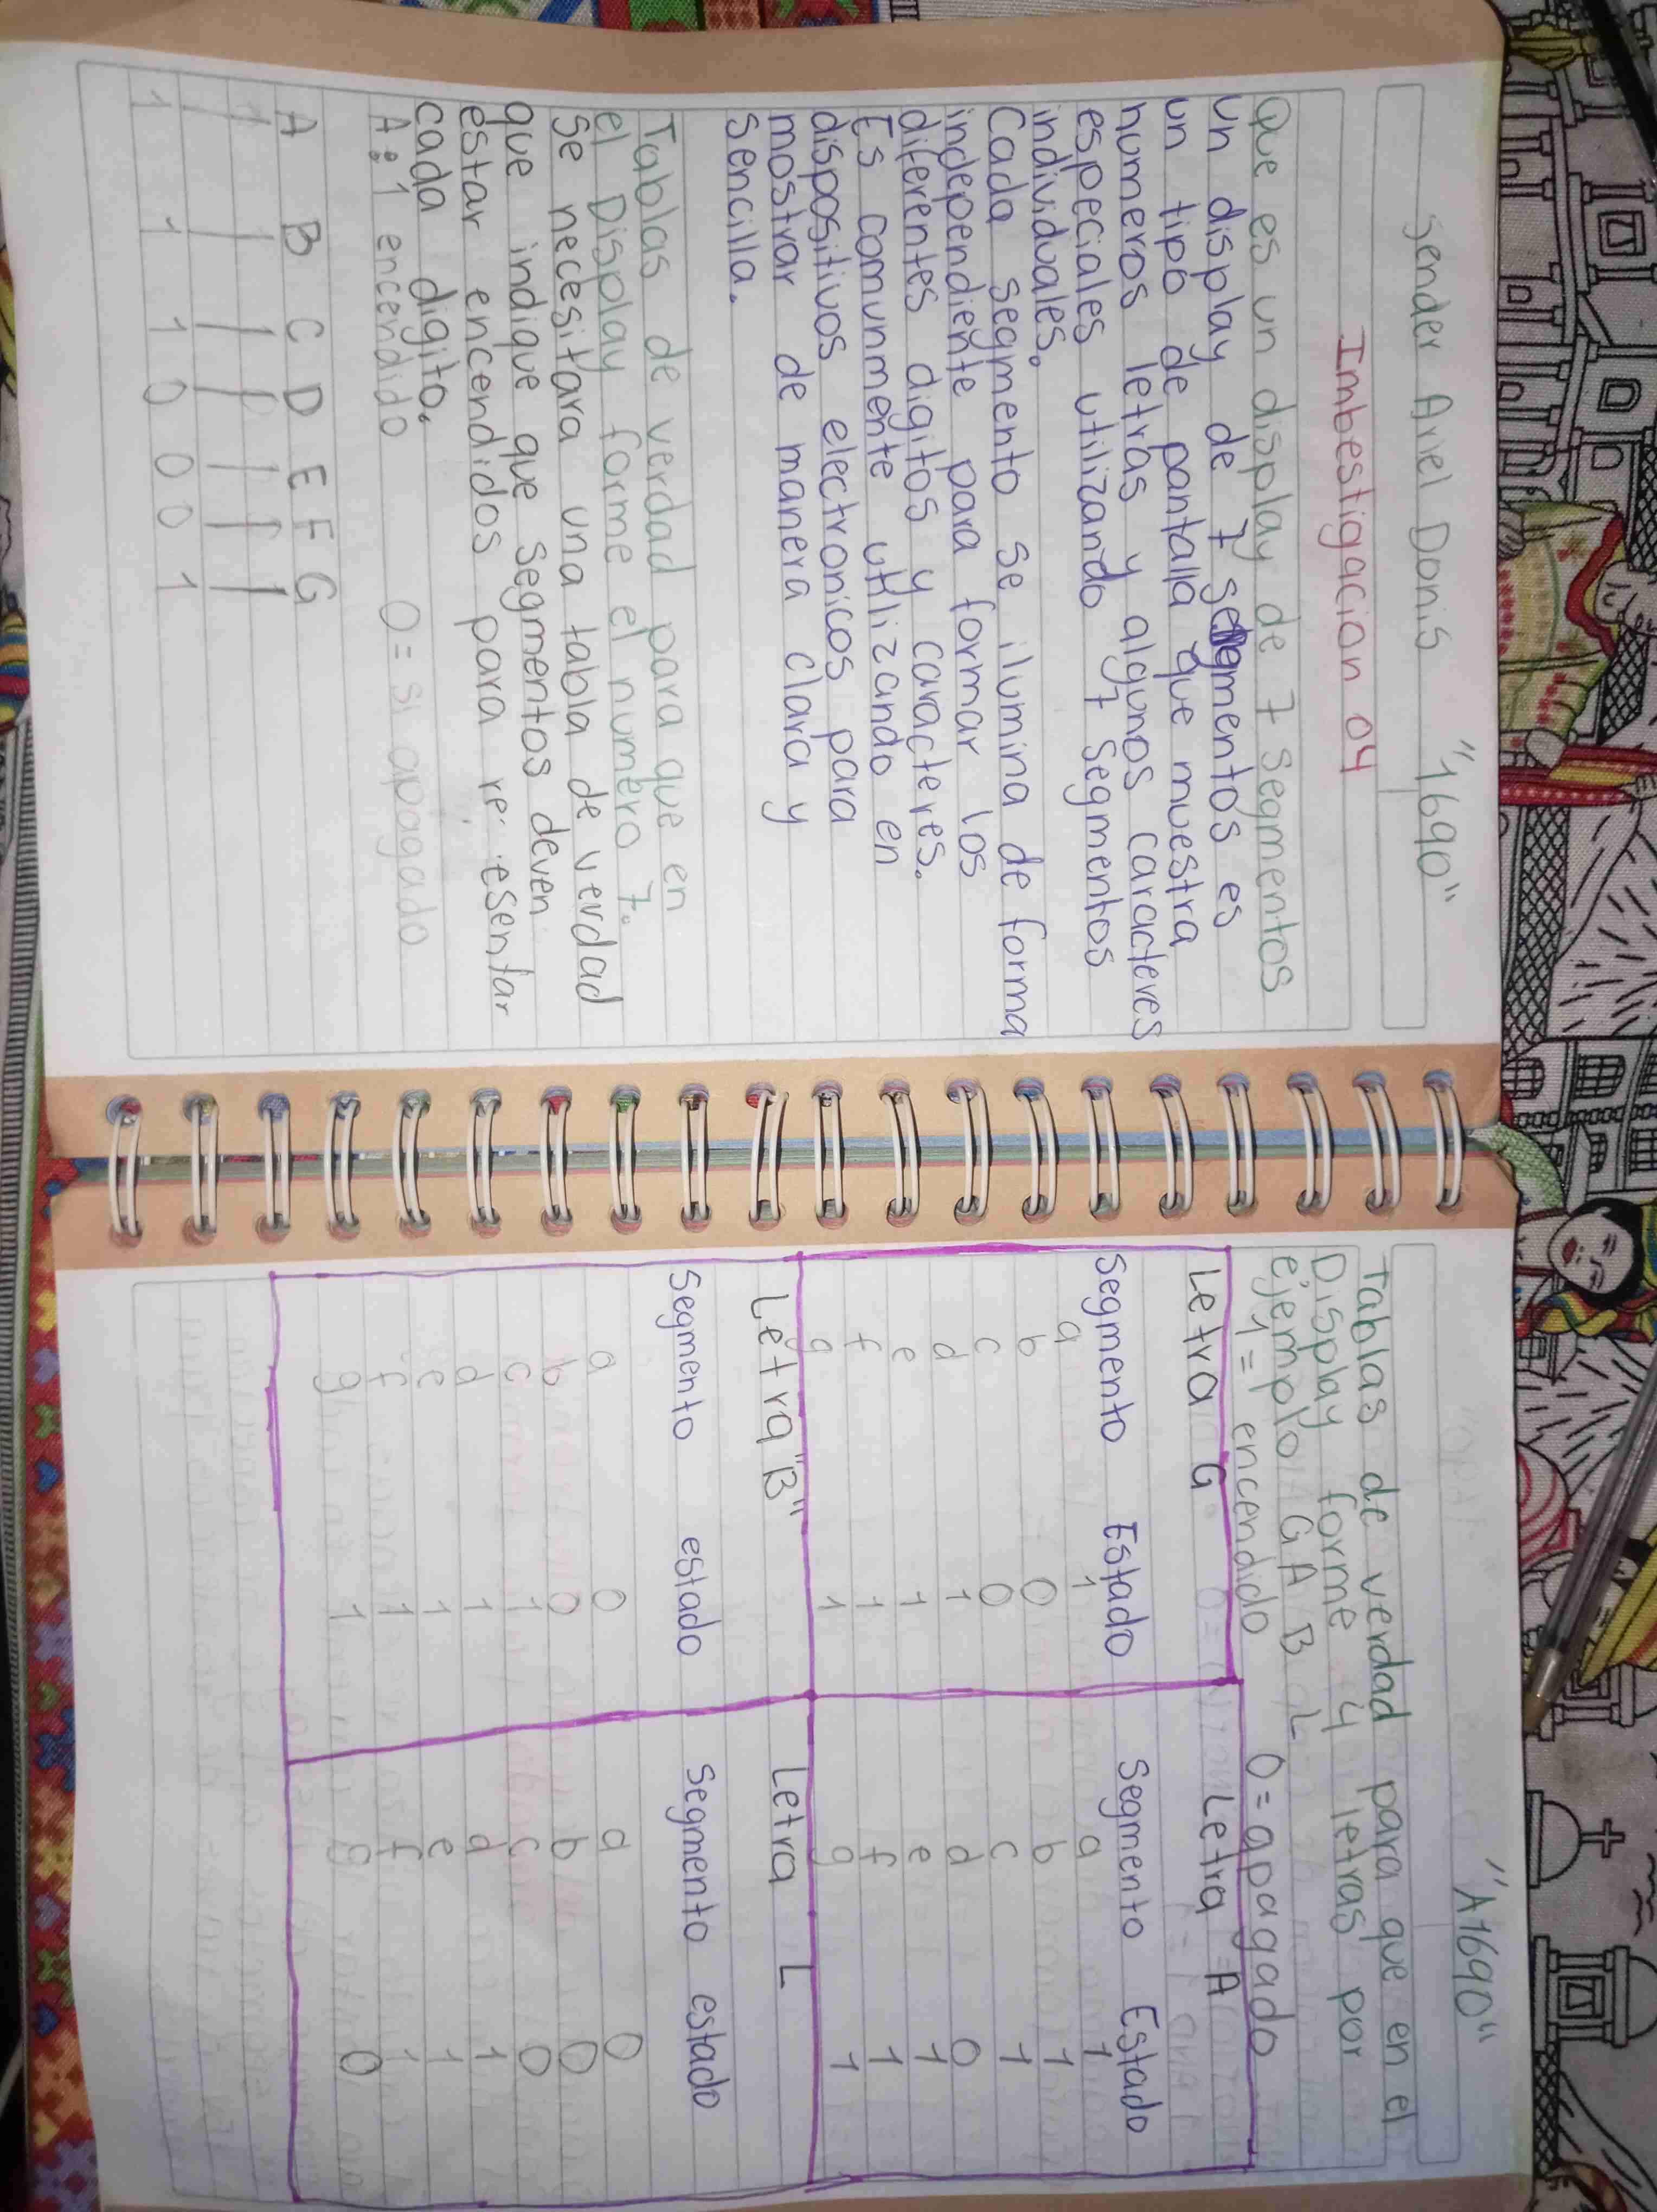 Sender Ariel Donis "1690"
Imbestigacion 04
Que es un display de 7 segmentos
un display de 7 segmentos es
un tipo de pantalla que muestra
numeros letras y algunos caracteres
especiales utilizando 7 segmentos
individuales.
Cada segmento se ilumina de forma
independiente para formar los
diferentes digitos y caracteres.
Es comunmente utilizando en
dispositivos electronicos para
mostrar de manera clara y
sencilla.
Tablas de verdad para que en
el Display forme el numero 7.
Se necesitara una tabla de verdad
que indique que segmentos deven
estar encendidos para re esentar
cada digito.
A: 1 encendido 0 = si apagado
A B C D E F G
1 1 1 0 0 0 1
"A1690"
Tablas de verdad para que en el
Display forme 4 letras por
ejemplo G A B L
1 = encendido 0 = apagado
Letra G
Segmento Estado
a 1
b 0
c 0
d 1
e 1
f 1
g 1
Letra A
Segmento Estado
a 1
b 1
c 1
d 0
e 1
f 1
g 1
Letra "B"
Segmento estado
a 0
b 0
c 1
d 1
e 1
f 1
g 1
Letra L
Segmento estado
a 0
b 0
c 0
d 1
e 1
f 1
g 0